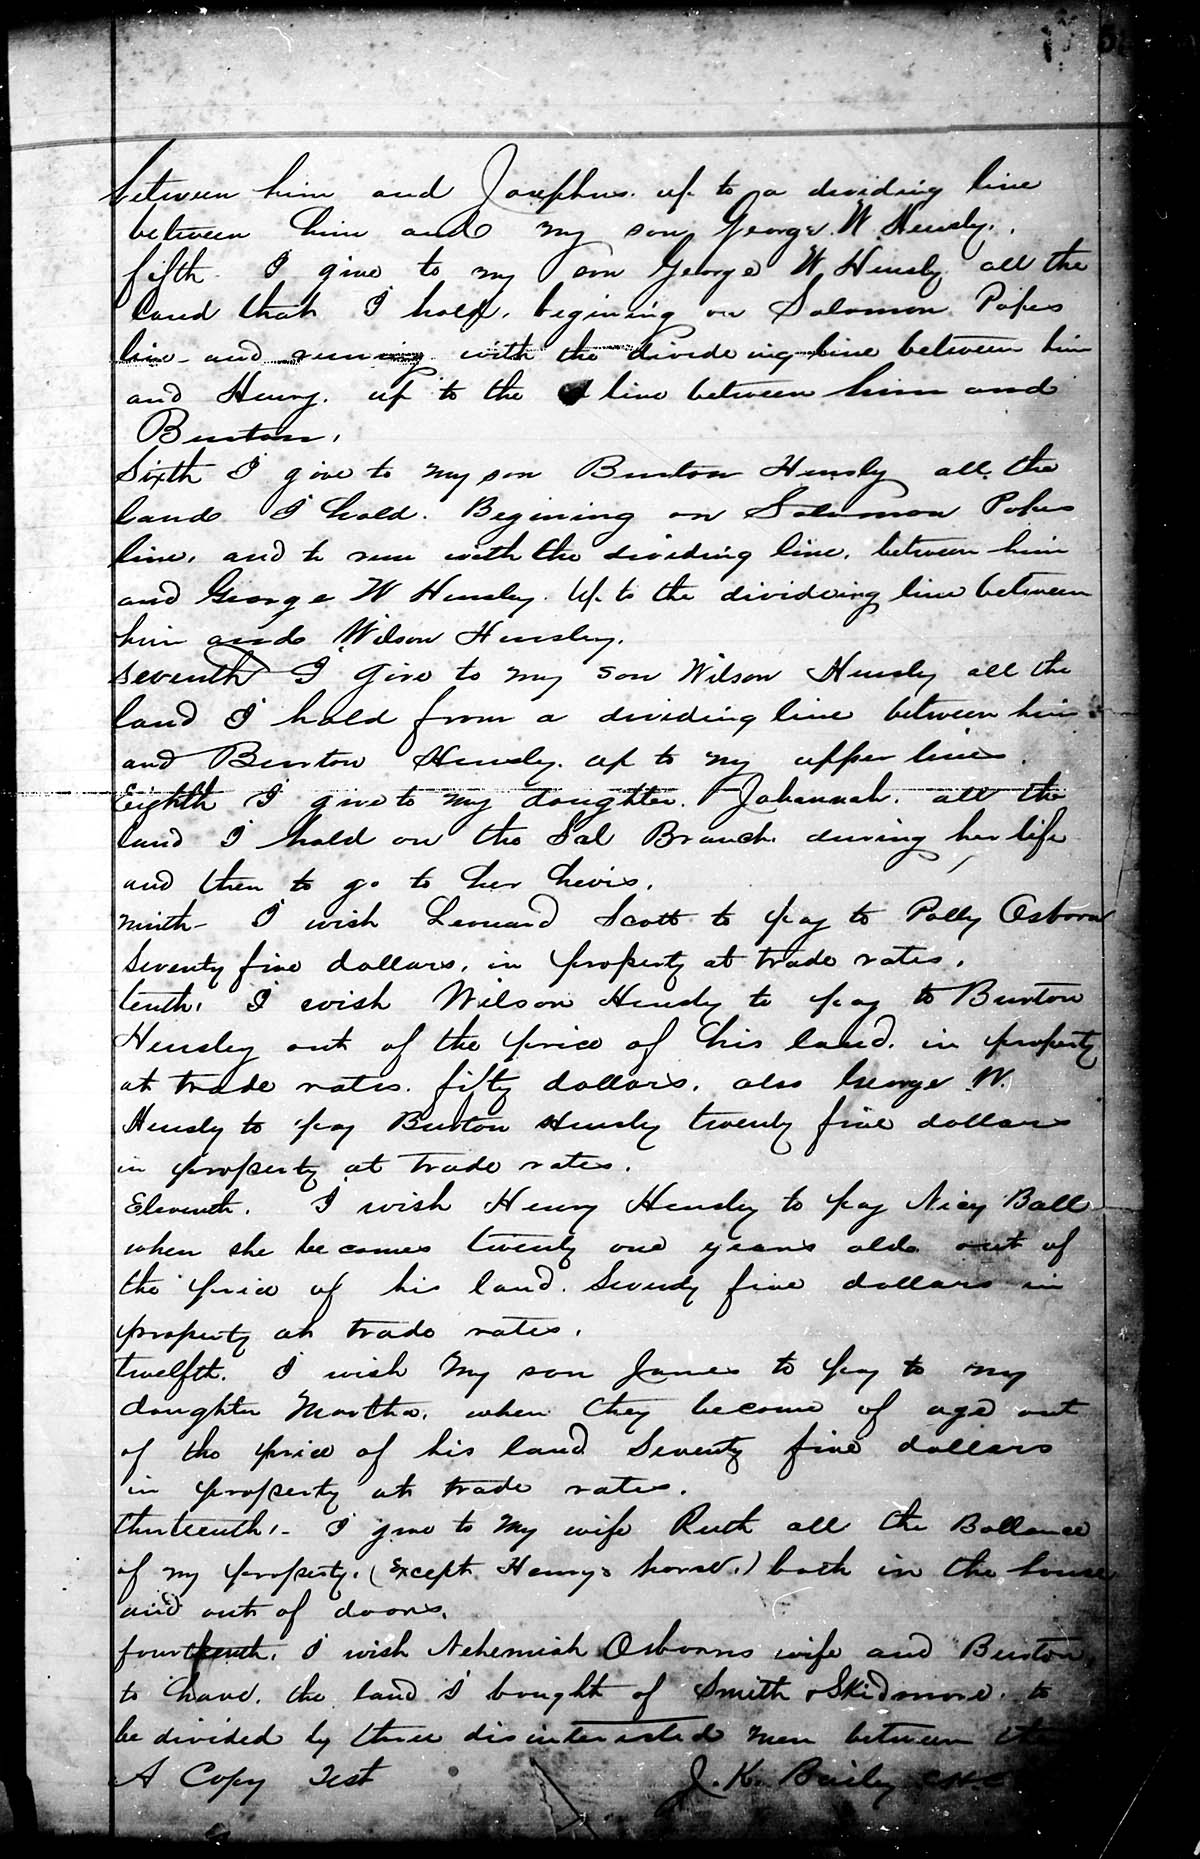 between him and Josephus. up to a dividing line
between him and my son George. W. Hensly.
fifth I give to my son George W. Hensly all the
land that I hold, begining on Solomon Popes
line and runing with the divide ing line between him
and Henry. up to the line between him and
Burton.
Sixth I give to my son Burton Hensly all the
land I hold. Begining on Solomon Popes
line, and to run with the dividing line, between him
and George W Hensley. Up to the divideing line between
him and Wilson Hensley.
seventh I give to my son Wilson Hensly all the
land I hold from a dividing line between him
and Burton Hensly. up to my upper lines.
Eighth I give to my daughter. Johannah. all the
land I hold on the Sal Branch during her life
and then to go to her heirs.
ninth- I wish Leonard Scott to pay to Polly Osborn
Seventy five dollars, in property at trade rates.
tenth, I wish Wilson Hensly to pay to Burton
Hensley out of the price of his land. in property
at trade rates. fifty dollars. also George W.
Hensly to pay Burton Hensley twenty five dollars
in property at trade rates.
Eleventh. I wish Henry Hensley to pay Nicy Ball
when she be comes twenty one years old out of
the price of his land. Seventy five dollars in
property at trade rates.
twelfth. I wish My son James to pay to my
daughter Martha. when they become of age out
of the price of his land Seventy five dollars
in property at trade rates.
thirteenth,- I give to My wife Ruth all the Ballance
of my property. (Except Henrys horse.) both in the house
and out of doors.
fourteenth. I wish Nehemiah Osborns wife and Burton
to have. the land I bought of Smith & Skidmore. to
be divided by three disinterested men between
A Copy Test J. K. Baily